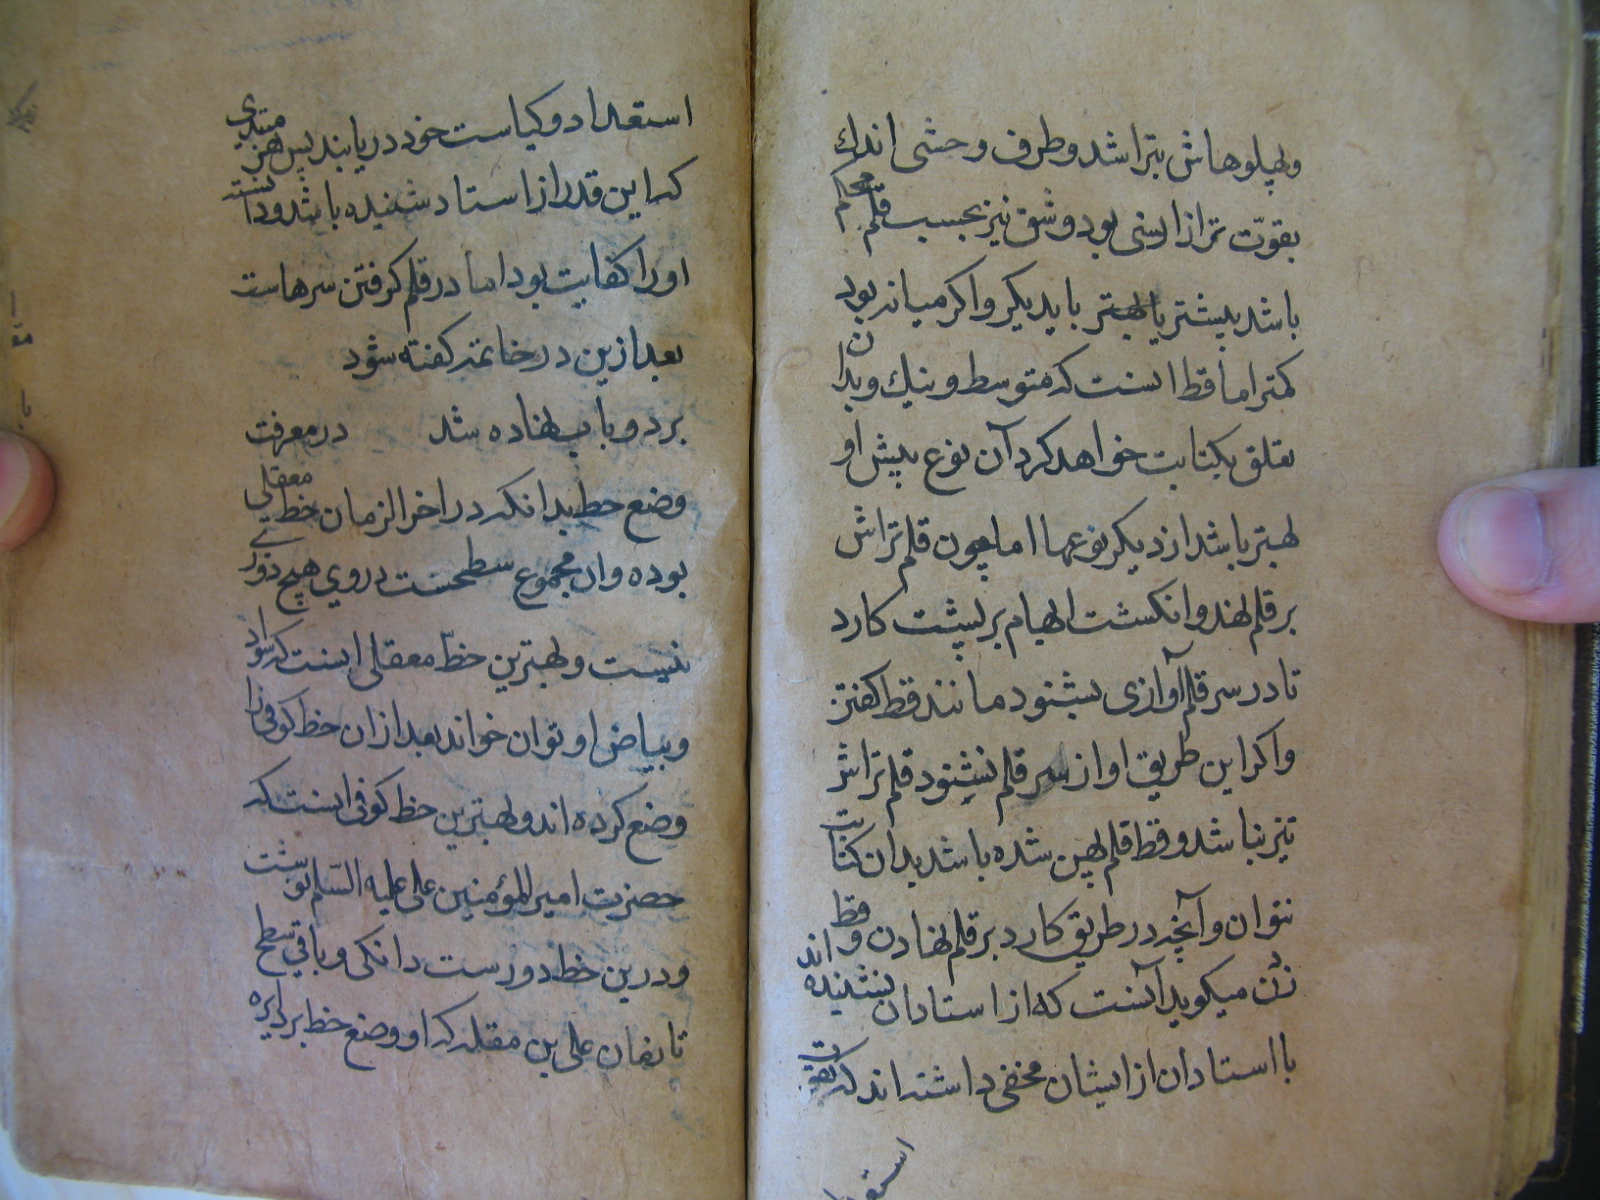 وپهلوهاش بتراشد وطرف وحشی اندك
بقوّت تر از انسی بود وشق نیز بحسب قلم محکم
باشد بیشتر یا بهتر باید یکر واکر میانه بود
کمتر اما قط انست که متوسط ونیك وبدان
تعلق بکتابت خواهد کرد آن نوع بیش او
بهتر باشد از دیکر نوعها اما چون قلمتراش
بر قلم نهد وانکشت ابهام بر پشت کارد
تا در سر قلم آوازی بشنود مانند قط کفتن
واکر این طریق اواز سر قلم نشنود قلم تراش
تیز نباشد وقط قلم پهن شده باشد بدان کتابت
نتوان وآنچه در طریق کارد بر قلم نهادن وقط
زدن میکوید آنست که از استادان نشنیده اند
یا استادان از ایشان مخفی داشته اند که بقوت
استعداد وکیاست خود دریابند پس هر مبتدی
که این قدر از استاد شنیده باشد ودانسته
اورا کفایت بود اما در قلم کرفتن سرهاست
بعد ازین در خاتمه کفته شود
بر دو باب نهاده شد در معرفت
وضع خط بدانکه در اخر الزمان خط معقلی
بوده وان مجموع سطحست بروی هیچ دوری
نیست وبهترین خط معقلی انست که سواد
وبیاض او توان خواند بعد ازان خط کوفی را
وضع کرده اند وبهترین خط کوفی انست که
حضرت امیر المؤمنین علی علیه السّلم نوشت
ودرین خط دورست دانکی وباقی سطح
تا بزمان علی بن مقله که او وضع خط بر دایره